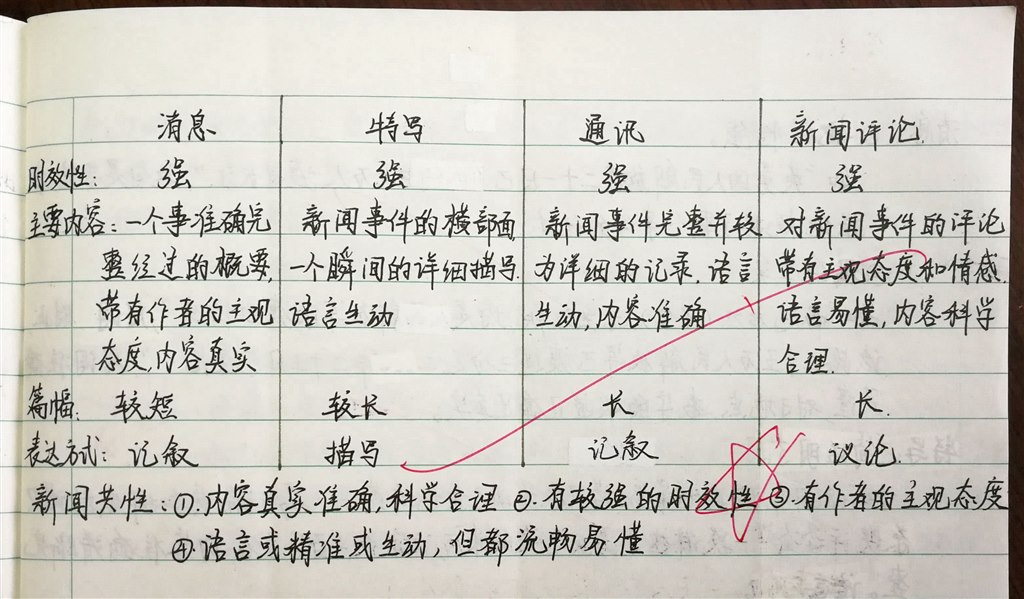 消息 特写 通讯 新闻评论
时效性: 强 强 强 强
主要内容: 一个事准确完 新闻事件的横部面 新闻事件完整并较 对新闻事件的评论
整经过的概要, 一个瞬间的详细描写. 为详细的记录, 语言 带有主观态度和情感.
带有作者的主观 语言生动 生动, 内容准确 语言易懂, 内容科学
态度, 内容真实 合理.
篇幅: 较短 较长 长 长.
表达方式: 记叙 描写 记叙 议论.
新闻共性: ①.内容真实准确, 科学合理 ②.有较强的时效性 ③.有作者的主观态度
④.语言或精准或生动, 但都流畅易懂